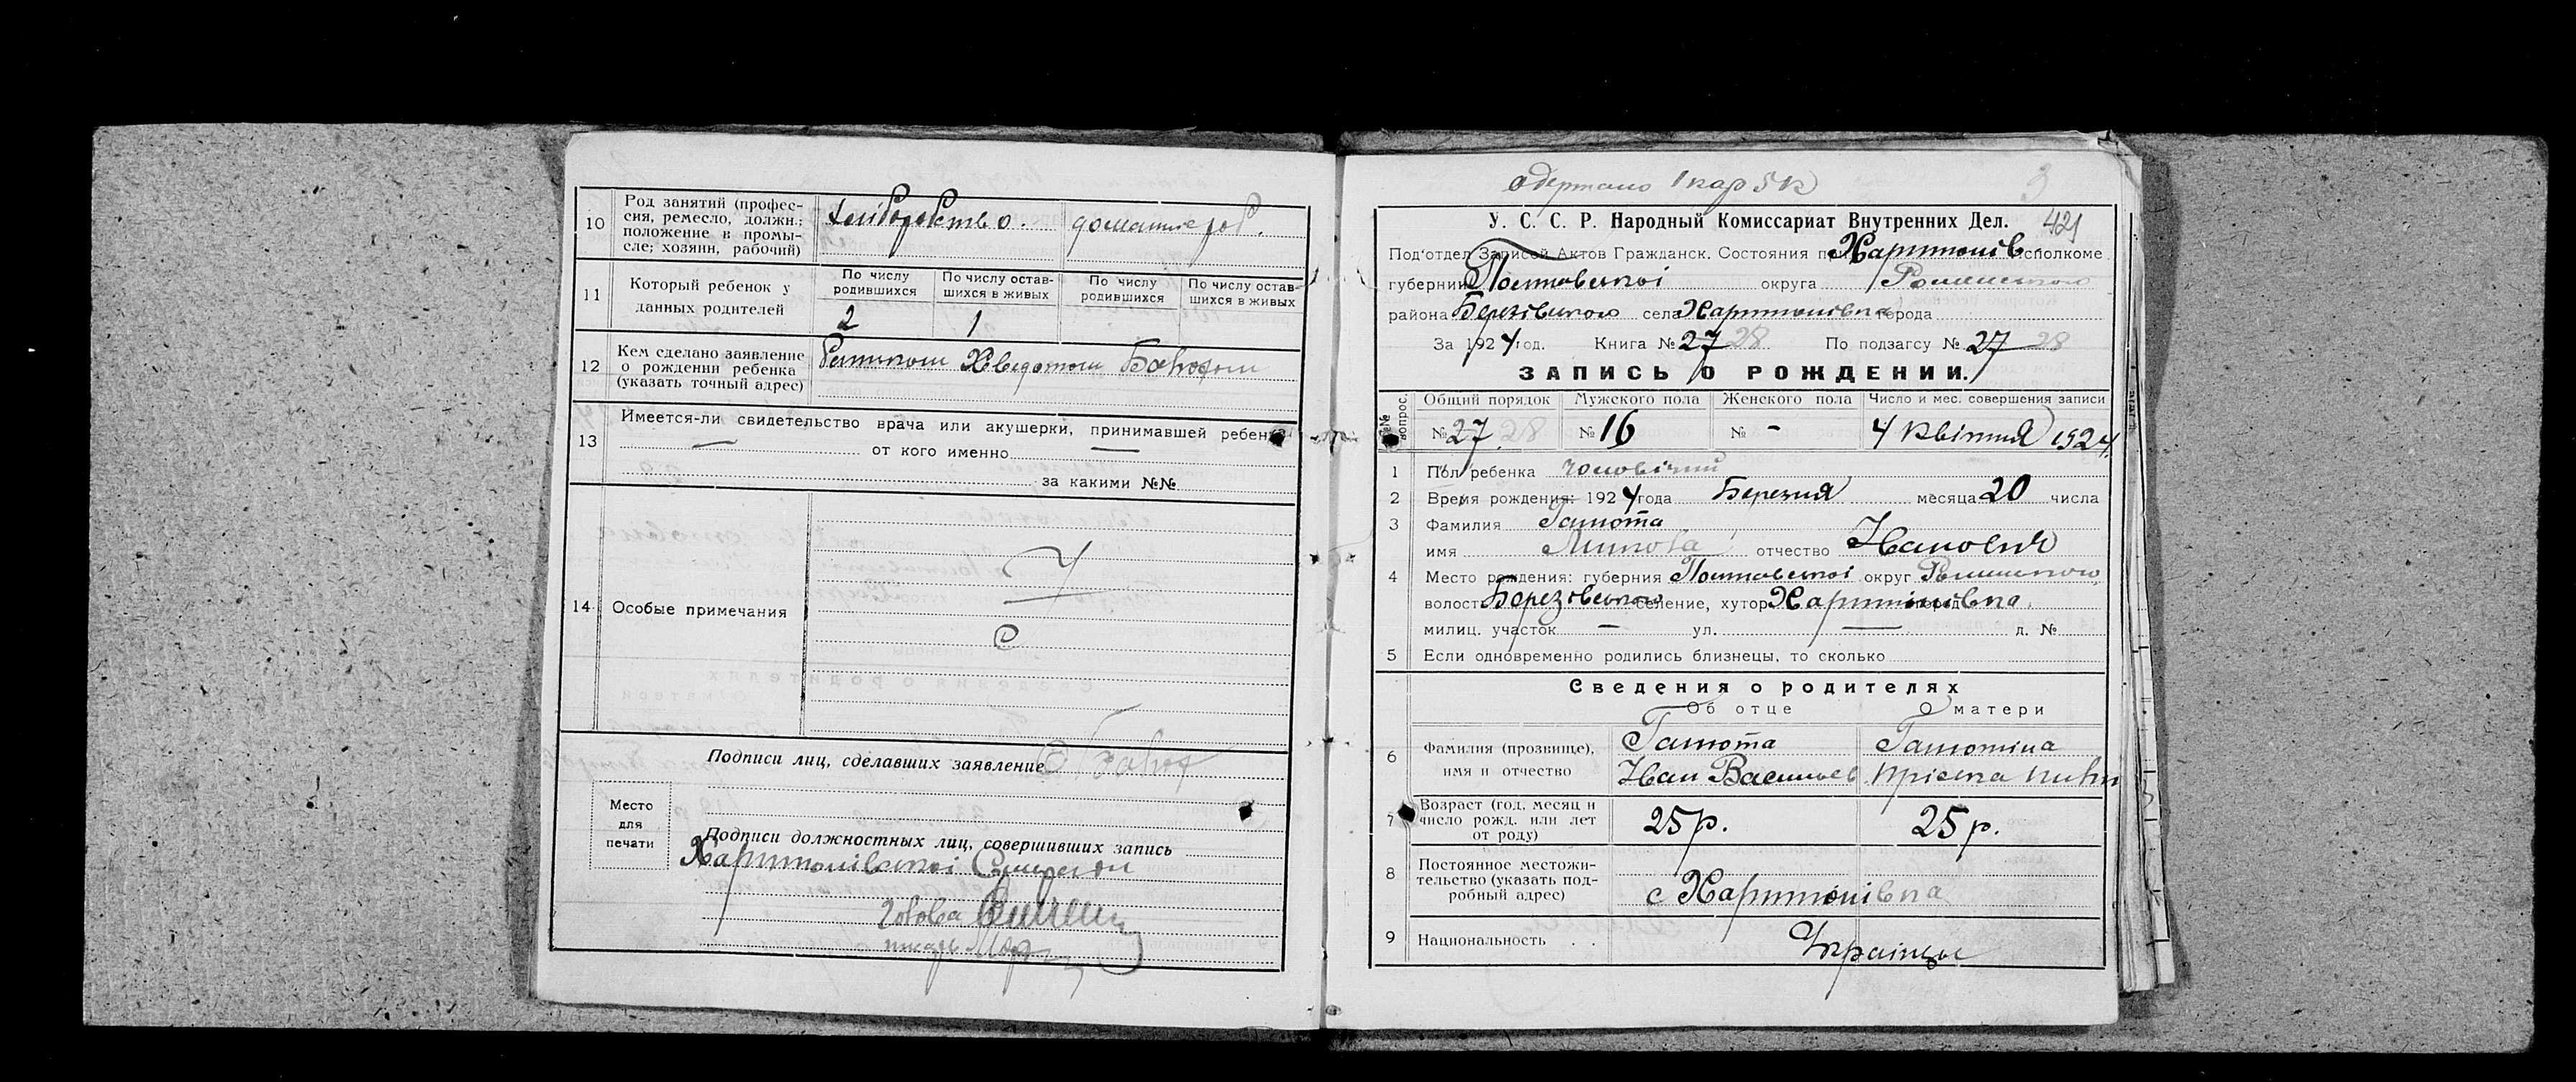 10 Род занятий (профес-
сия, ремесло, должн.;
положение в промы-
сле; хозяин, рабочий)
хліборобство. домашне роб.
11 Который ребенок у
данных родителей
По числу
родившихся
По числу остав-
шихся в живых
По числу
родившихся
По числу остав-
шихся в живых
2 1
12 Кем сделано заявление
о рождении ребенка
(указать точный адрес)
13 Имеется-ли свидетельство врача или акушерки, принимавшей ребенка
— от кого именно —
за какими №№
14 Особые примечания
Подписи лиц, сделавших заявление
Место
для
печати
Подписи должностных лиц, совершивших запись
Харитонівської Сільради
Голова
писарь
одержано 1 кар 5 к
3
У. С. С. Р. Народный Комиссариат Внутренних Дел. 421
Под'отдел Записей Актов Гражданск. Состояния при Харитонів сполкоме
губернии Полтавської округа Роменського
района Березівського села Харитонівка города
За 1924 год. Книга № 27 28 По подзагсу № 27 28
ЗАПИСЬ О РОЖДЕНИИ.
№№ вопрос. Общий порядок Мужского пола Женского пола Число и мес. совершения записи
№ 27 28 № 16 № - 4 Квітня 1924
1 Пол ребенка чоловічий
2 Время рождения: 1924 года Березня месяца 20 числа
3 Фамилия Гамота
имя Микола отчество Иванович
4 Место рождения: губерния Полтавської округ Роменського
волость Березівського селение, хутор Харитонівка
милиц. участок — ул. — д. №
5 Если одновременно родились близнецы, то сколько
Сведения о родителях
Об отце О матери
6 Фамилия (прозвище),
имя и отчество
Гамота Гамотина
Иван Васильев
7 Возраст (год, месяц и
число рожд. или лет
от роду)
25 р. 25 р.
8 Постоянное местожи-
тельство (указать под-
робный адрес)
с Харитонівка
9 Национальность . .
Українці